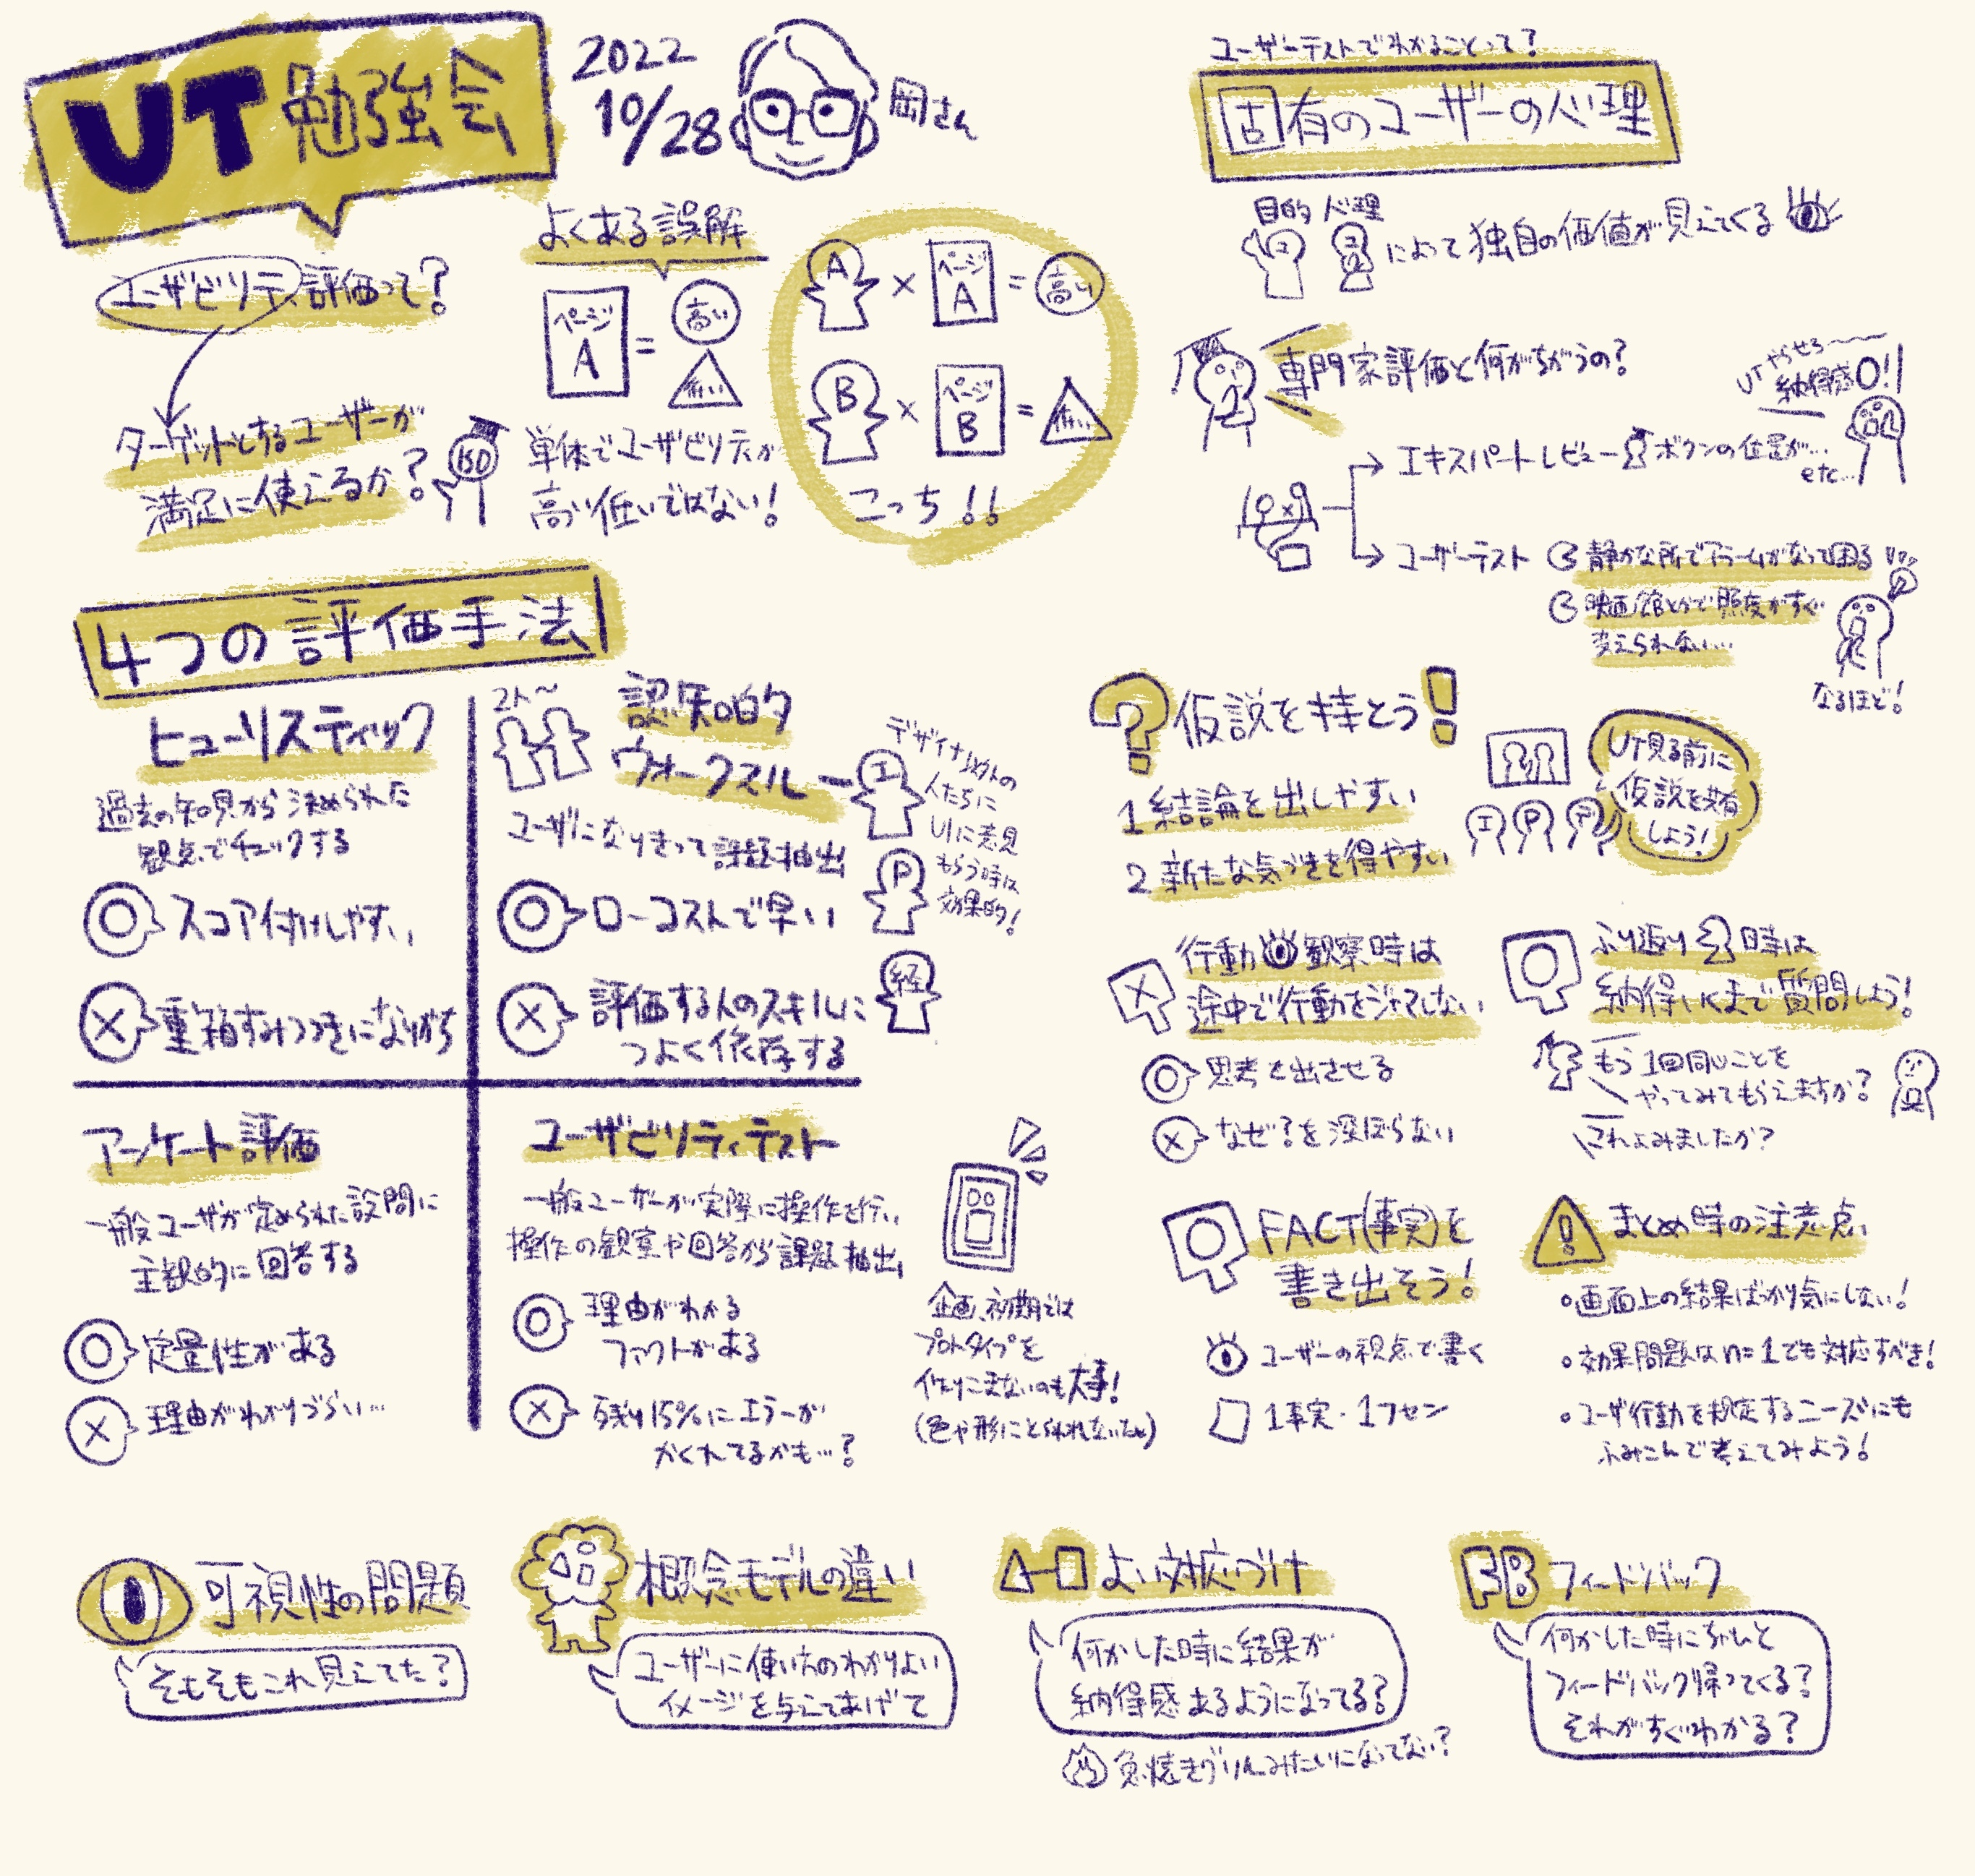 UT 勉強会
2022
10/28
岡さん
ユーザビリティ評価って?
ターゲットとあるユーザーが
満足に使えるか?
ISO
よくある誤解
ページ
A
=
高い
低い
単体でユーザビリティが
高い低いではない!
A × ページ A = 高い
B × ページ B = 低い
こっち!!
ユーザーテストでわかることって?
固有のユーザーの心理
目的 心理
によって独自の価値が見えてくる
専門家評価と何がちがうの?
UTやらせろ〜〜
納得感0!!
エキスパートレビュー
ボタンの位置が…
etc…
ユーザーテスト
静かな所でアラームがなって困る
映画館とかで照度がすぐ
変えられない…
なるほど!
4つの評価手法
ヒューリスティック
過去の知見から決められた
観点でチェックする
◎ スコア付けしやすい
× 重箱すみつつきになりがち
2人〜
認知的
ウォークスルー
ユーザになりきって課題抽出
◎ ローコストで早い
× 評価する人のスキルに
つよく依存する
エ
P
経
デザイナ以外の
人たちに
UIに意見
もらう時は
効果的!
アンケート評価
一般ユーザが定められた設問に
主観的に回答する
◎ 定量性がある
× 理由がわかりづらい…
ユーザビリティテスト
一般ユーザーが実際に操作を行い
操作の観察や回答から課題抽出
◎ 理由がわかる
ファクトがある
× 残り15%にエラーが
かくれてるかも…?
企画、初期では
プロトタイプを
作りこまないのも大事!
(色や形にとらわれないため)
? 仮説を持とう!
1 結論を出しやすい
2 新たな気づきを得やすい
エ P デ
UT見る前に
仮説を共有
しよう!
× 行動観察時は
途中で行動をジャマしない
◎ 思考を出させる
× なぜ?を深ぼらない
ふり返り時は
納得いくまで質問しよう!
もう1回同じことを
やってみてもらえますか?
これよみましたか?
FACT(事実)を
書き出そう!
ユーザーの視点で書く
1事実・1フセン
! まとめ時の注意点
・画面上の結果ばかり気にしない!
・効果問題はn=1でも対応すべき!
・ユーザ行動を規定するニーズにも
ふみこんで考えてみよう!
可視性の問題
そもそもこれ見えてた?
概念モデルの違い
ユーザーに使い方のわかりよい
イメージを与えてあげて
よい対応づけ
何かした時に結果が
納得感あるようになってる?
魚焼きグリルみたいになってない?
FB フィードバック
何かした時にちゃんと
フィードバック帰ってくる?
それがすぐわかる?